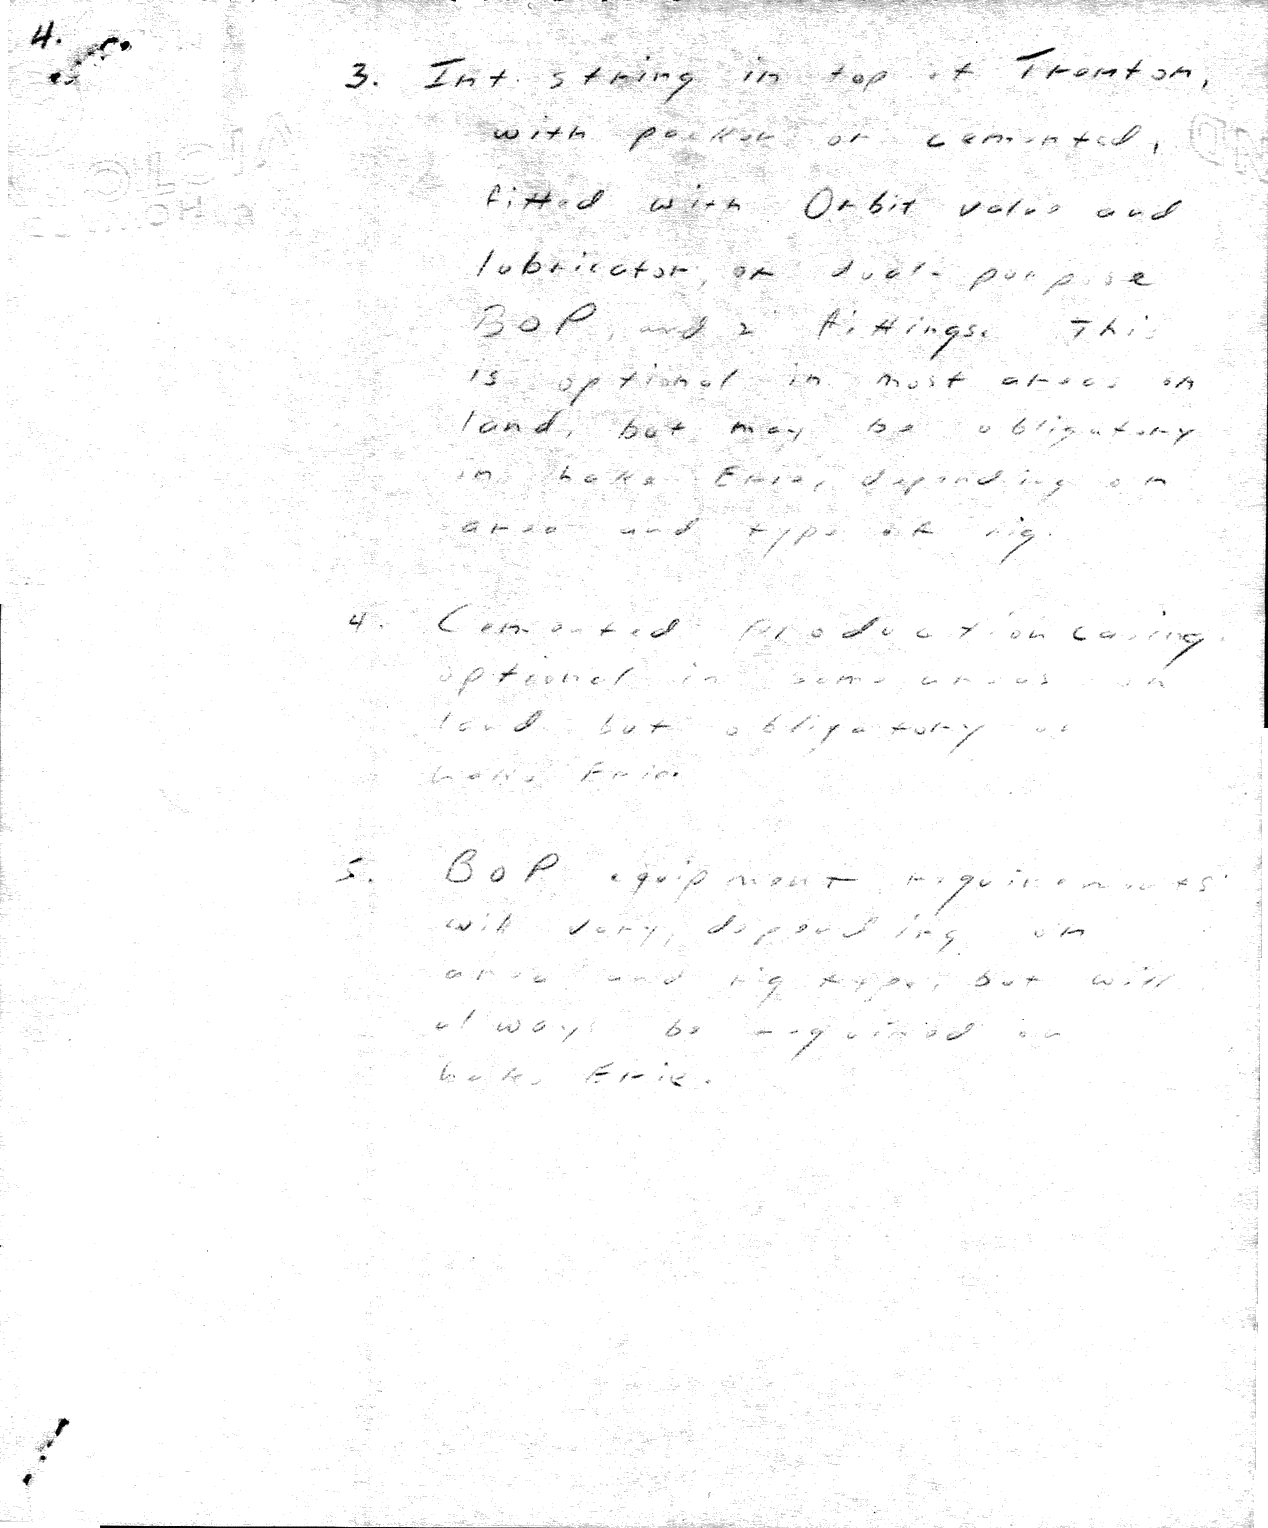 4.
3. Int. string in top of Trenton,
with packer or cemented,
fitted with Orbit valve and
lubricator, or dual-purpose
BOP, and 2" fittings. This
is optional in most areas on
land, but may be obligatory
in Lake Erie, depending on
area and type of rig.
4. Cemented production casing.
optional in some areas on
land but obligatory on
Lake Erie.
5. BOP equipment requirements
will vary, depending on
area and rig type, but will
always be required on
Lake Erie.